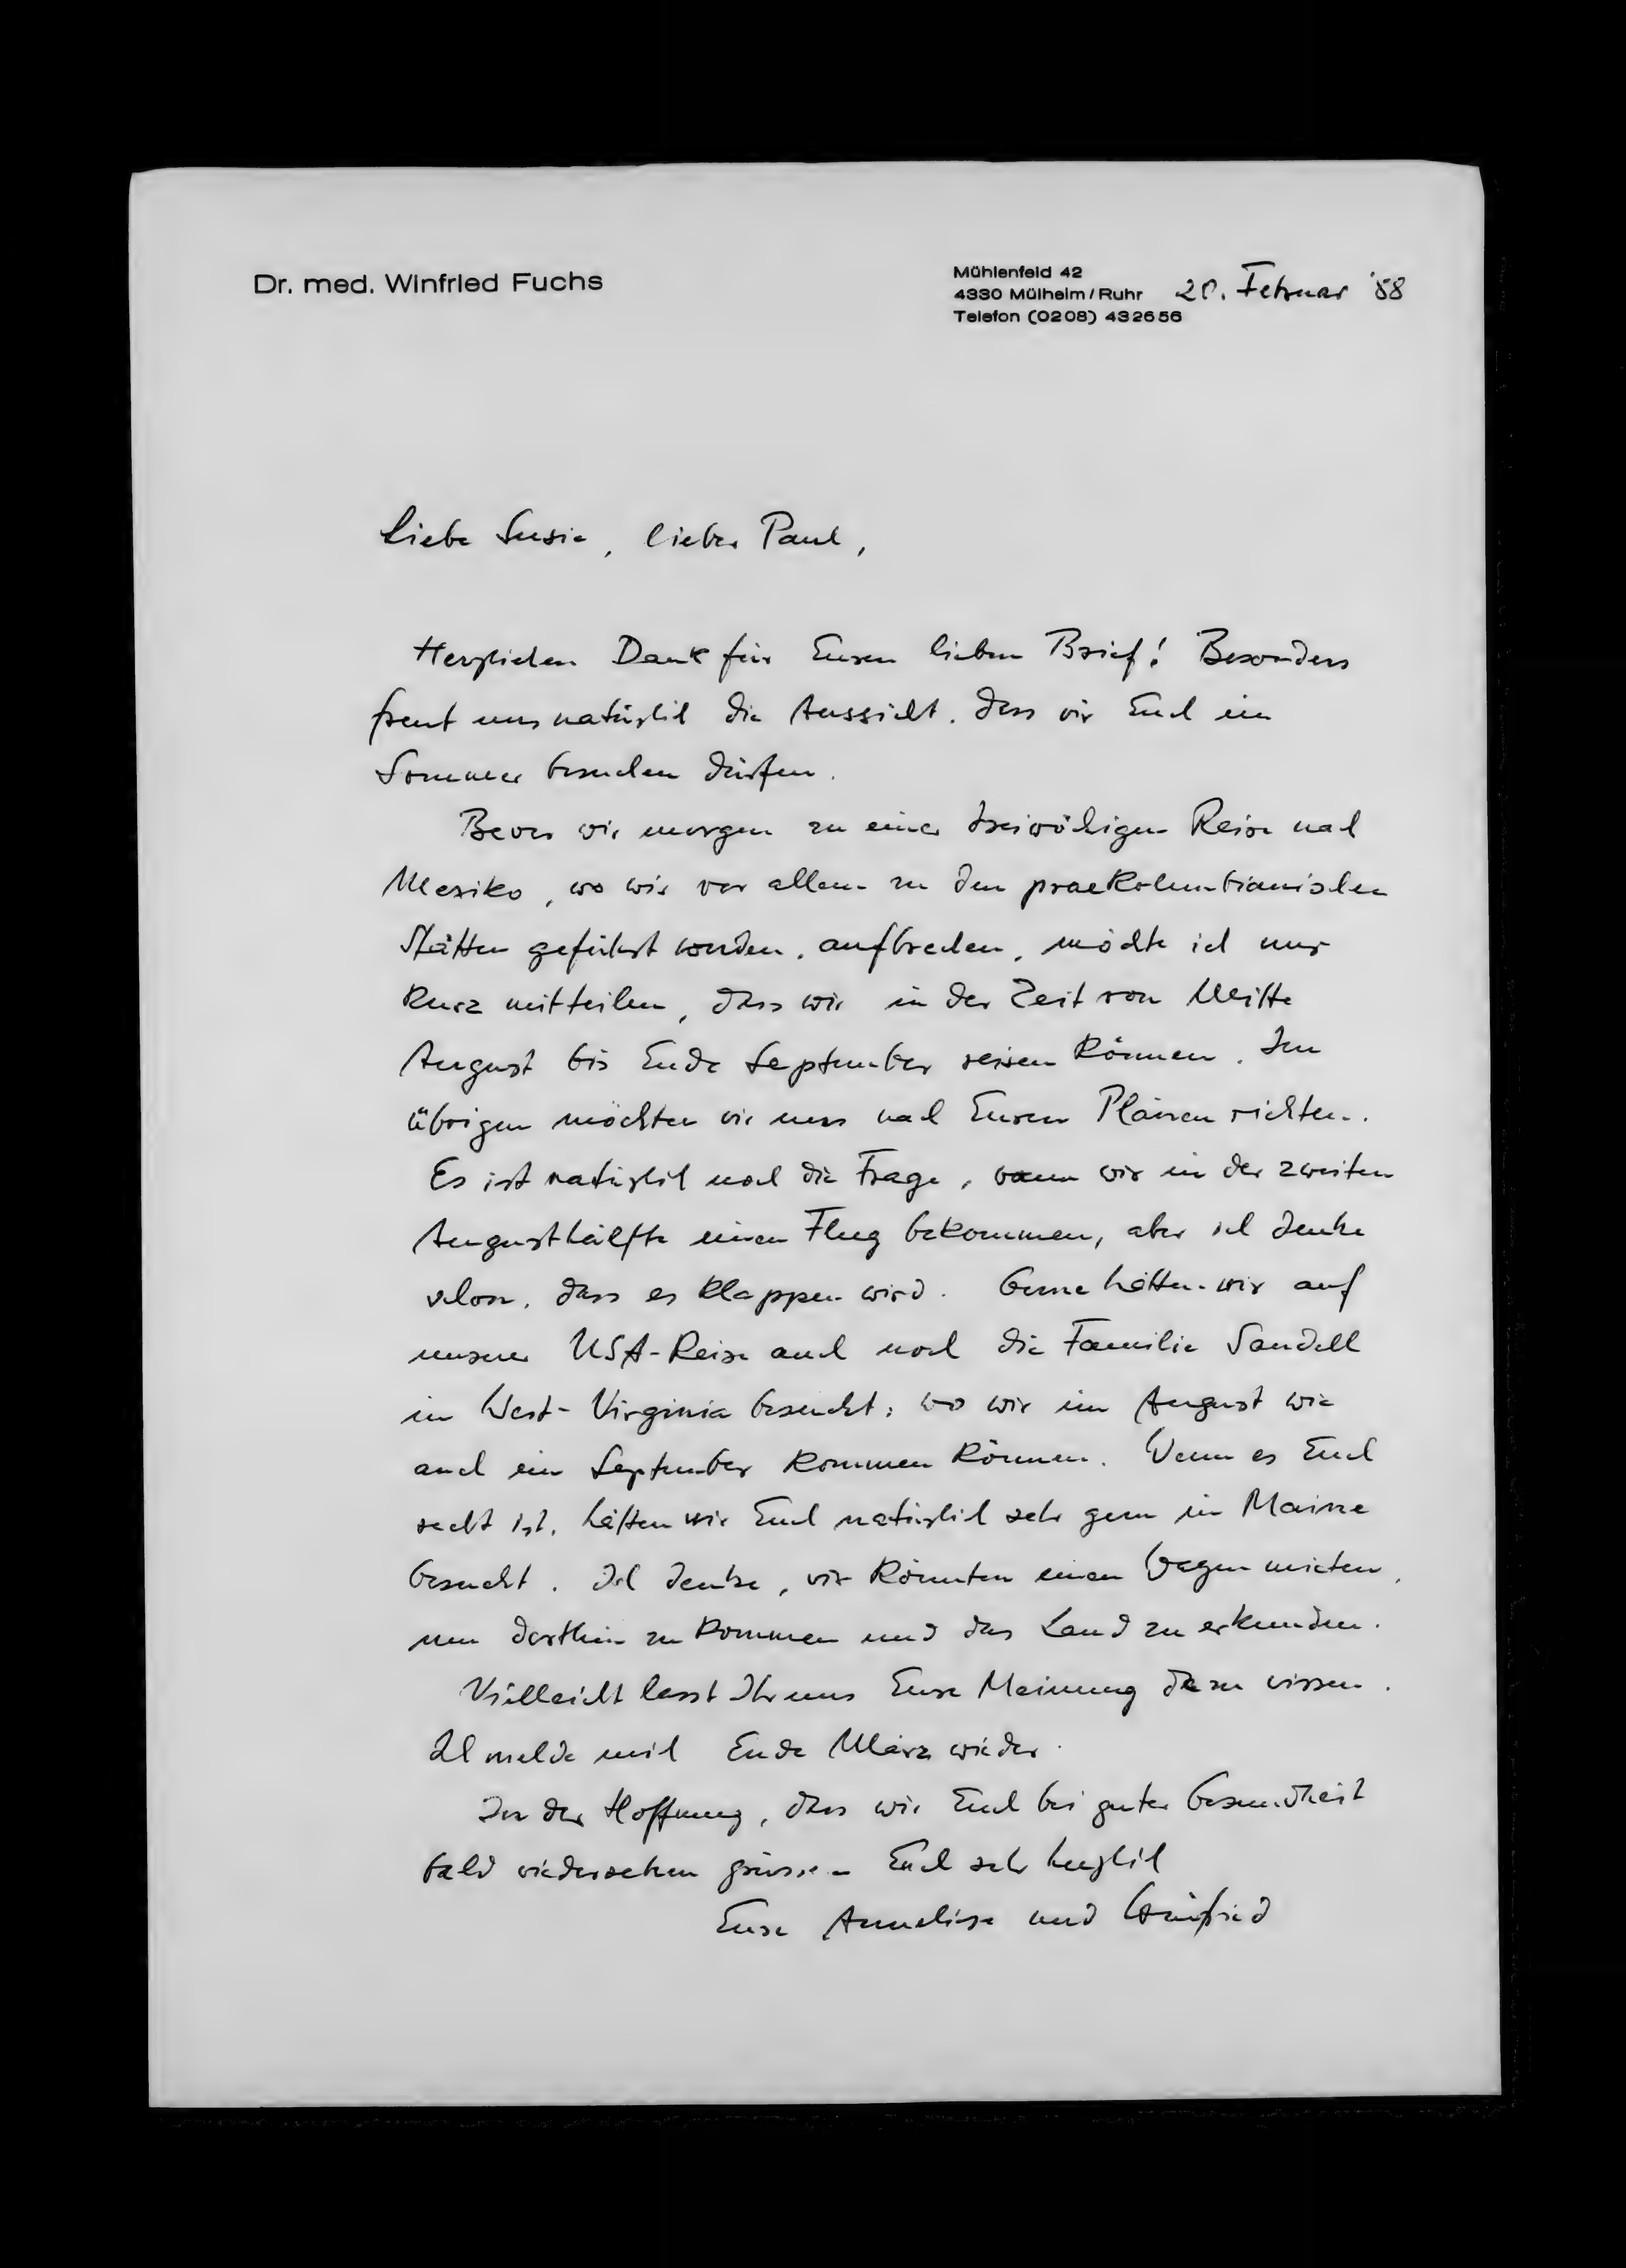 Dr. med. Winfried Fuchs
Mühlenfeld 42
4330 Mülheim/Ruhr
Telefon (0208) 432656
20. Februar '88
Liebe Susie, lieber Paul,
Herzlichen Dank für Euren lieben Brief! Besonders
freut uns natürlich die Aussicht, dass wir Euch im
Sommer besuchen dürfen.
Bevor wir morgen zu einer dreiwöchigen Reise nach
Mexiko, wo wir vor allem zu den praekolumbianischen
Stätten geführt werden, aufbrechen, möchte ich nur
kurz mitteilen, dass wir in der Zeit von Mitte
August bis Ende September reisen können. Im
übrigen möchten wir uns nach Euren Plänen richten.
Es ist natürlich noch die Frage, wann wir in der zweiten
Augusthälfte einen Flug bekommen, aber ich denke
schon, dass es klappen wird. Gerne hätten wir auf
unserer USA-Reise auch noch die Familie Sandell
in West-Virginia besucht, wo wir im August wie
auch im September kommen können. Wenn es Euch
recht ist, hätten wir Euch natürlich sehr gern in Maine
besucht. Ich denke, wir könnten einen Wagen mieten,
um dorthin zu kommen und das Land zu erkunden.
Vielleicht lasst Ihr uns Eure Meinung dazu wissen.
Ich melde mich Ende März wieder.
In der Hoffnung, dass wir Euch bei guter Gesundheit
bald wiedersehen grüssen Euch sehr herzlich
Eure Anneliese und Winfried